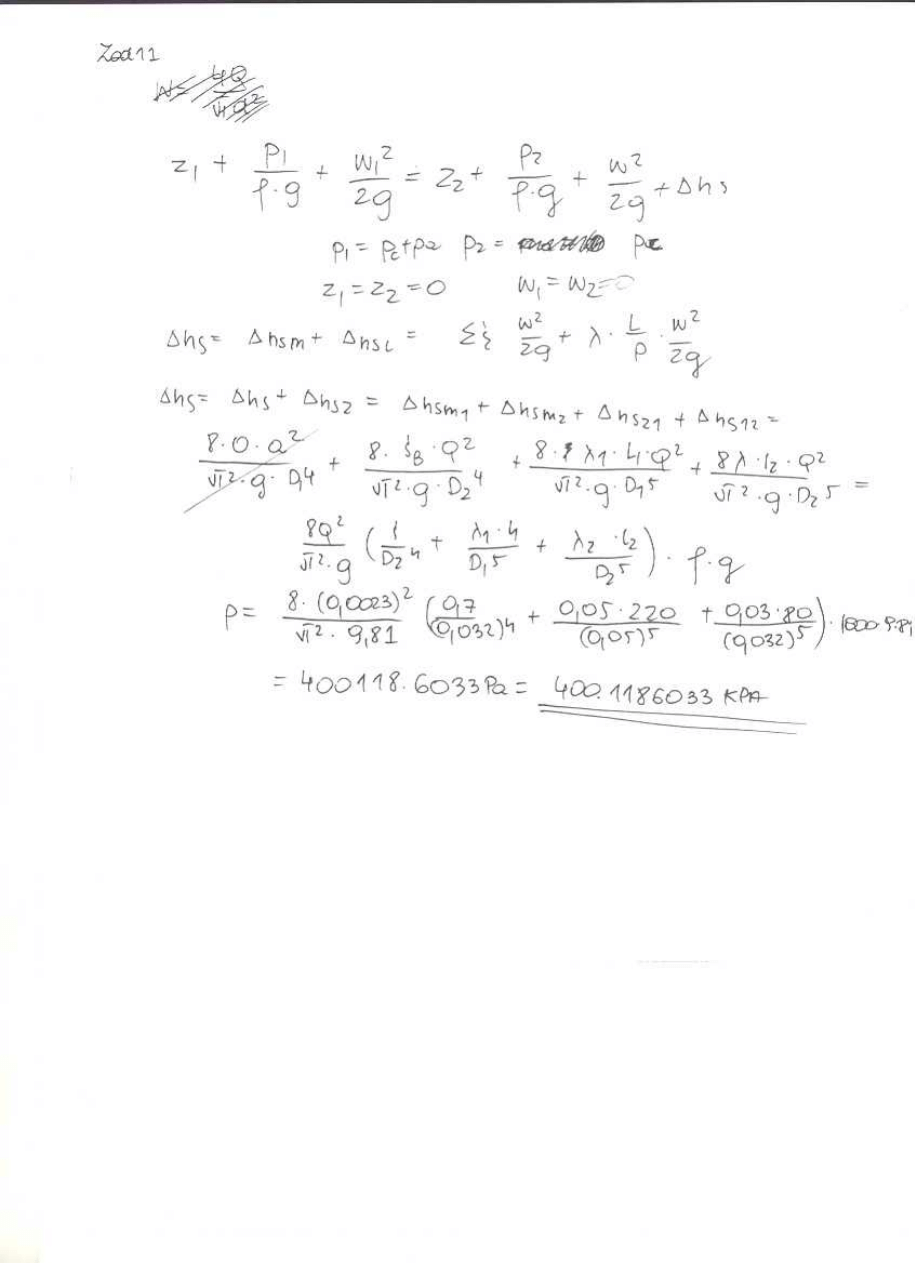 Zad 11
z₁ + p₁/(ρ·g) + w₁²/2g = z₂ + p₂/(ρ·g) + w²/2g + Δhs
p₁ = pc+pa p₂ = pa
z₁ = z₂ = 0 w₁ = w₂ = 0
Δhs = Δhsm + ΔhsL = Σξ w²/2g + λ · L/D · w²/2g
Δhs = Δhs + Δhs2 = Δhsm1 + Δhsm2 + Δhs21 + Δhs12 =
8·0·Q²/(π²·g·D₁4) + 8·ξB·Q²/(π²·g·D₂⁴) + 8·λ1·L1·Q²/(π²·g·D1⁵) + 8λ·l2·Q²/(π²·g·D₂5) =
8Q²/(π²·g) (ξ/D₂4 + λ1·L1/D₁5 + λ2·L2/D₂5) · ρ·g
p = 8·(0,0023)²/(π²·9,81) (0,7/(0,032)4 + 0,05·220/(0,05)⁵ + 0,03·80/(0,032)⁵) · 1000·9.81
= 400118.6033 Pa = 400.1186033 KPA